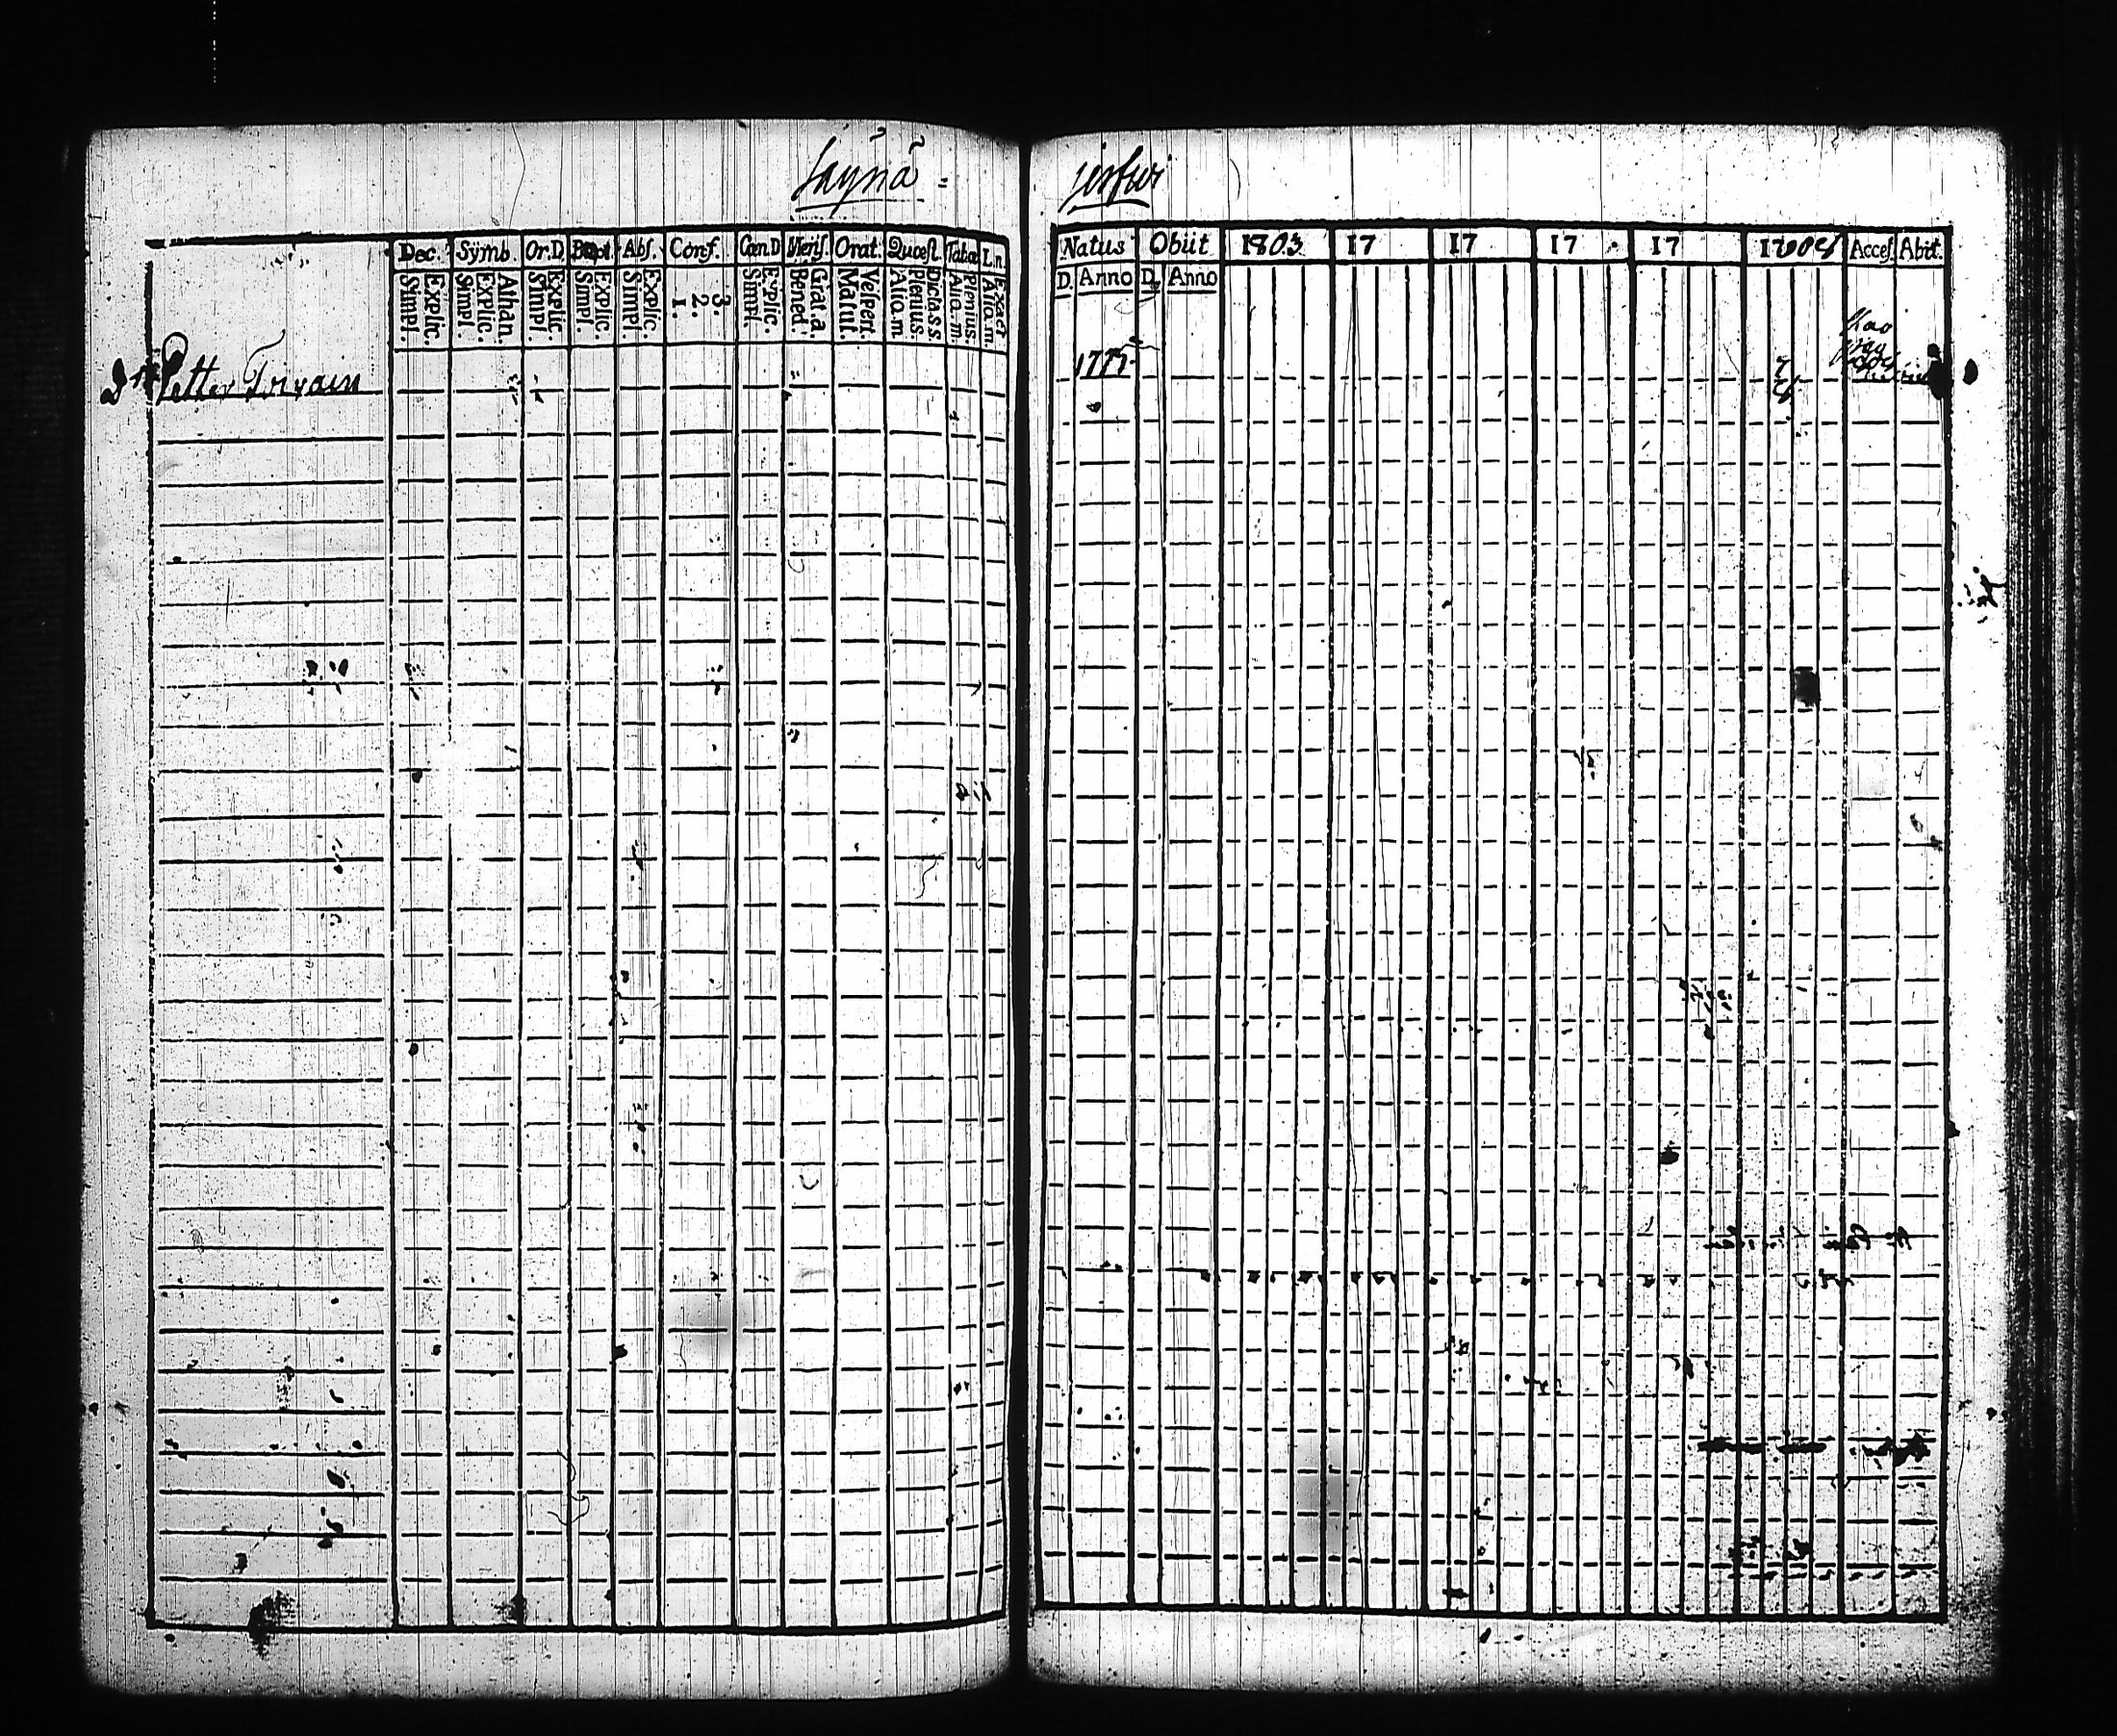 Säynä =
järfwi
Dec. Symb. Or.D. Bapt. Abs. Conf. Can.D Mens. Orat. Quæst. Tabæ L.n.
Explic. Simpl. Athan. Explic. Simpl. Explic. Simpl. Explic. Simpl. Explic. Simpl. 3. 2. 1. Explic. Simpl. Grat.a. Bened. Vespert. Matut. Dicta.s.s. Plenius. Alio.m. Plenius. Alio.m. Exact Alio.m.
Natus Obiit 1803 17 17 17 17 1804 Acces. Abit.
D. Anno D. Anno
Petter 1777